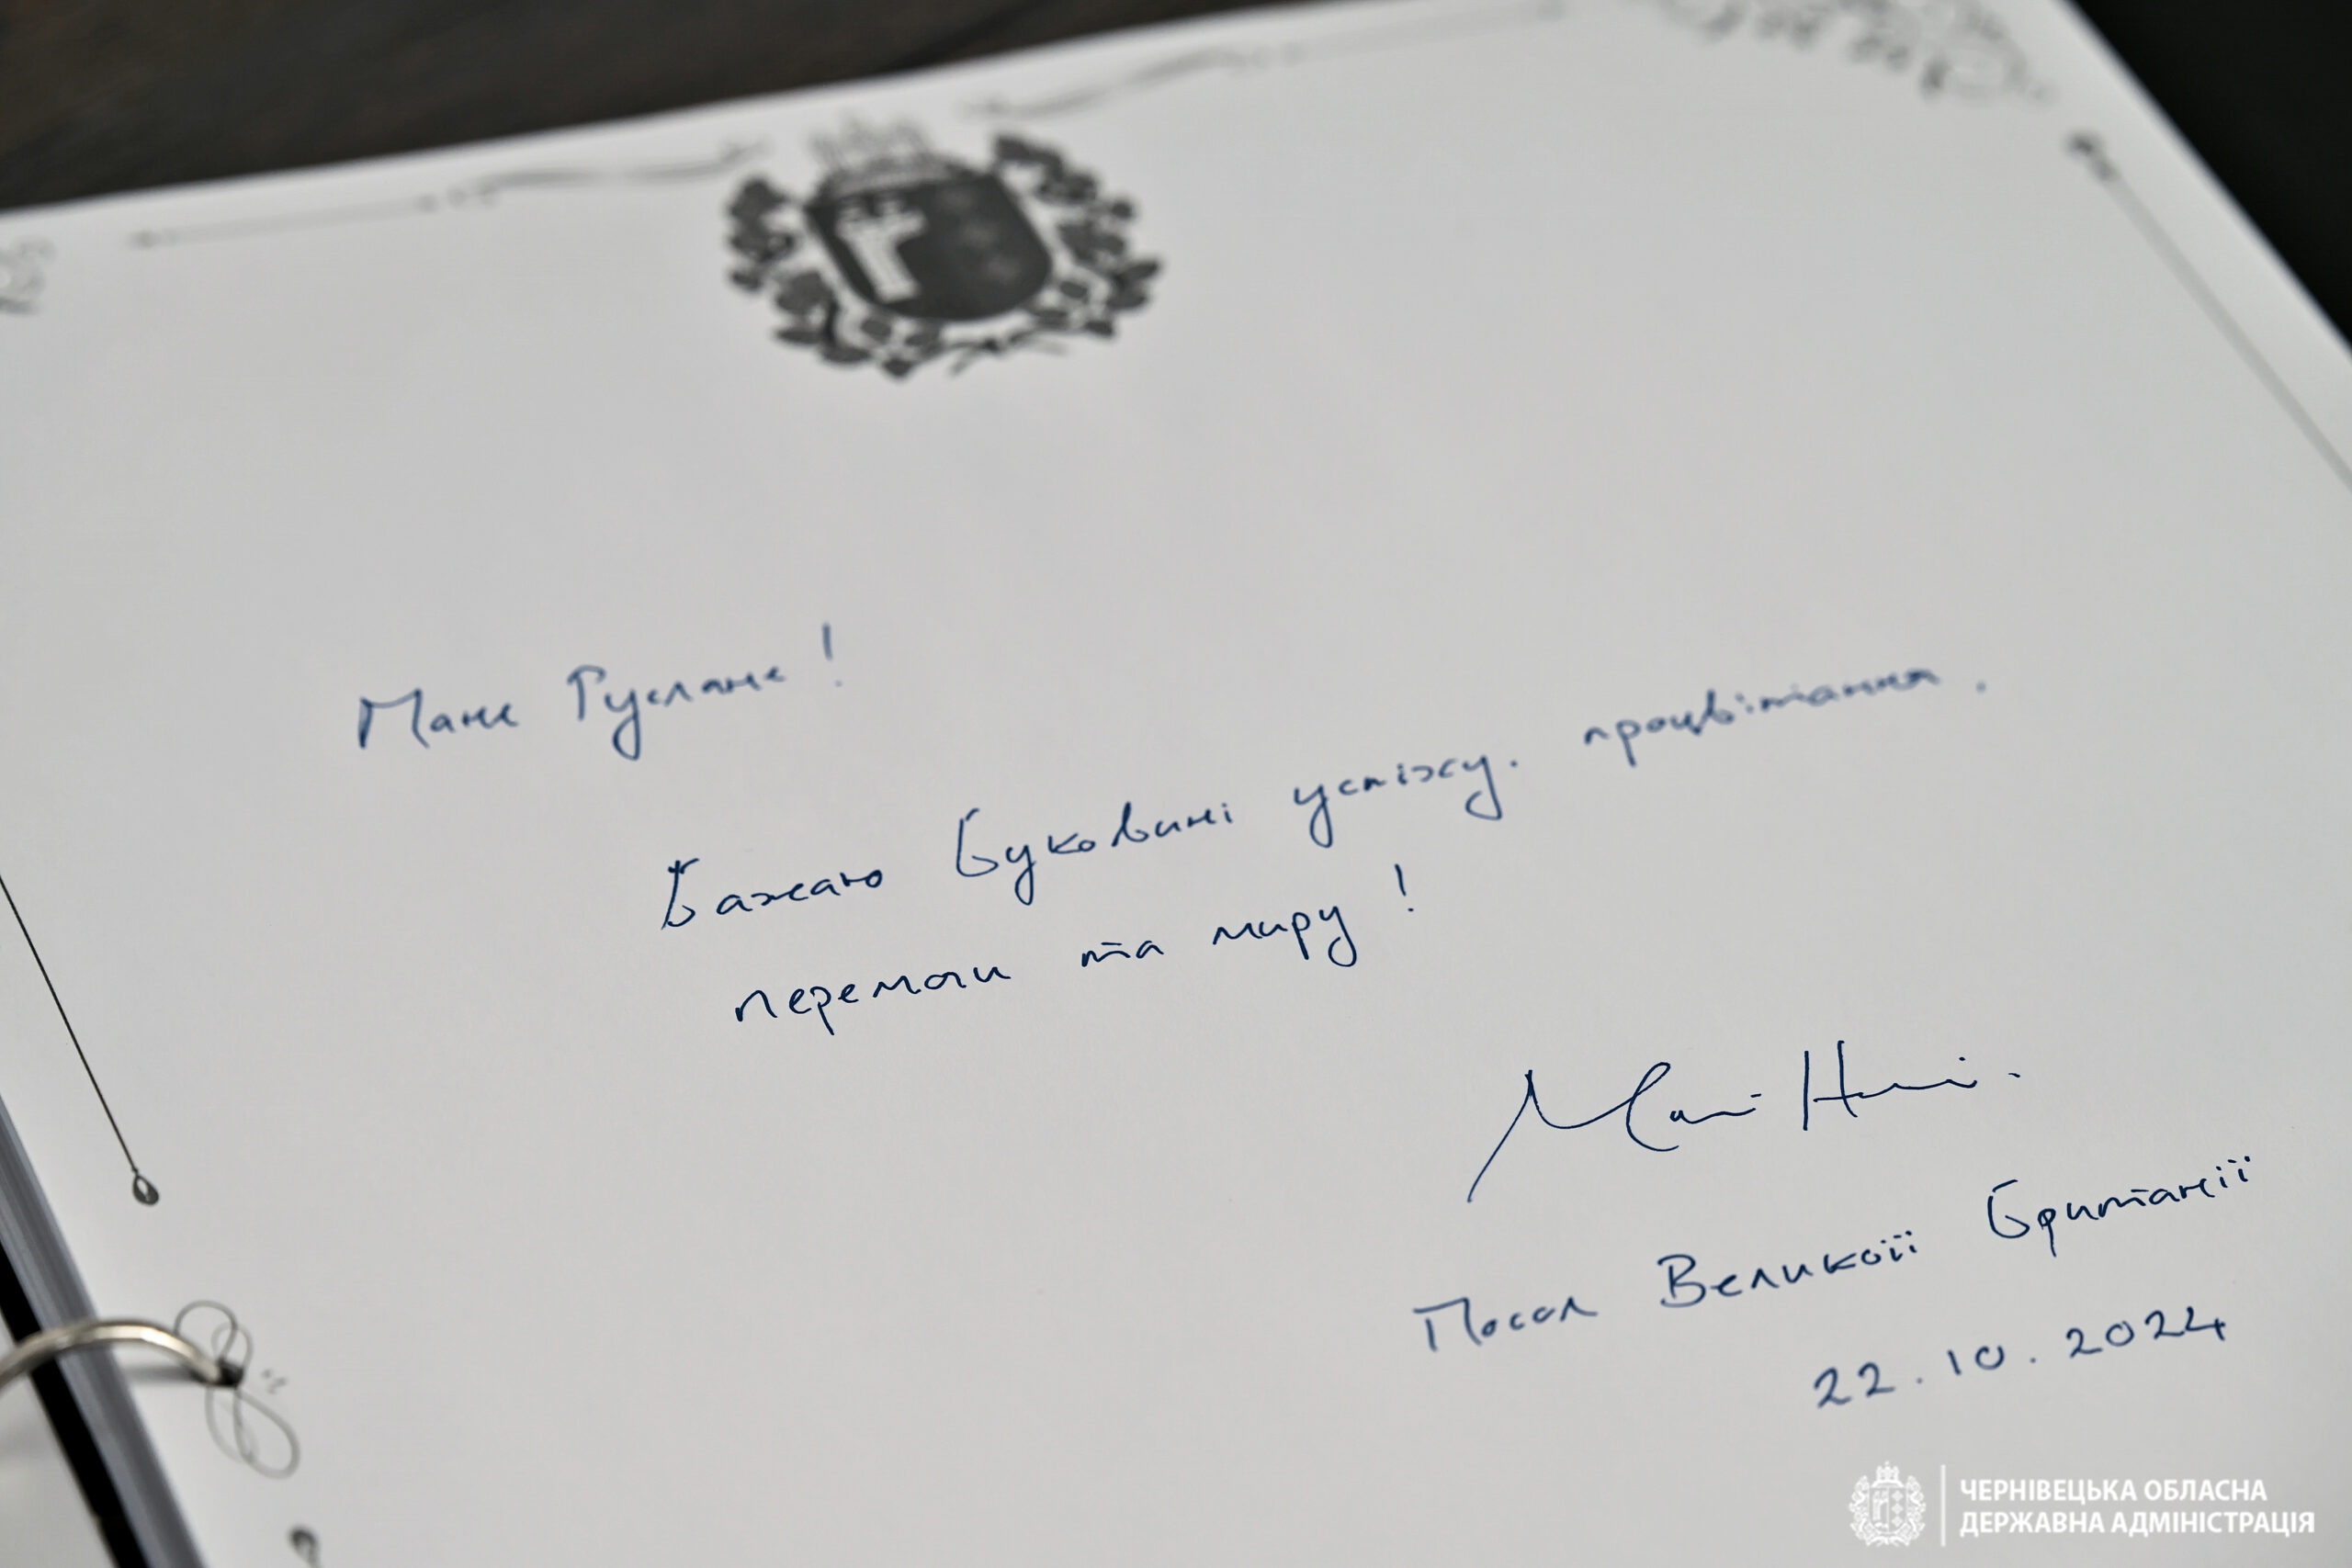 Пане Руслане!
Бажаю Буковині успіху, процвітання,
перемоги та миру!
Посол Великої Британії
22.10.2024
ЧЕРНІВЕЦЬКА ОБЛАСНА
ДЕРЖАВНА АДМІНІСТРАЦІЯ